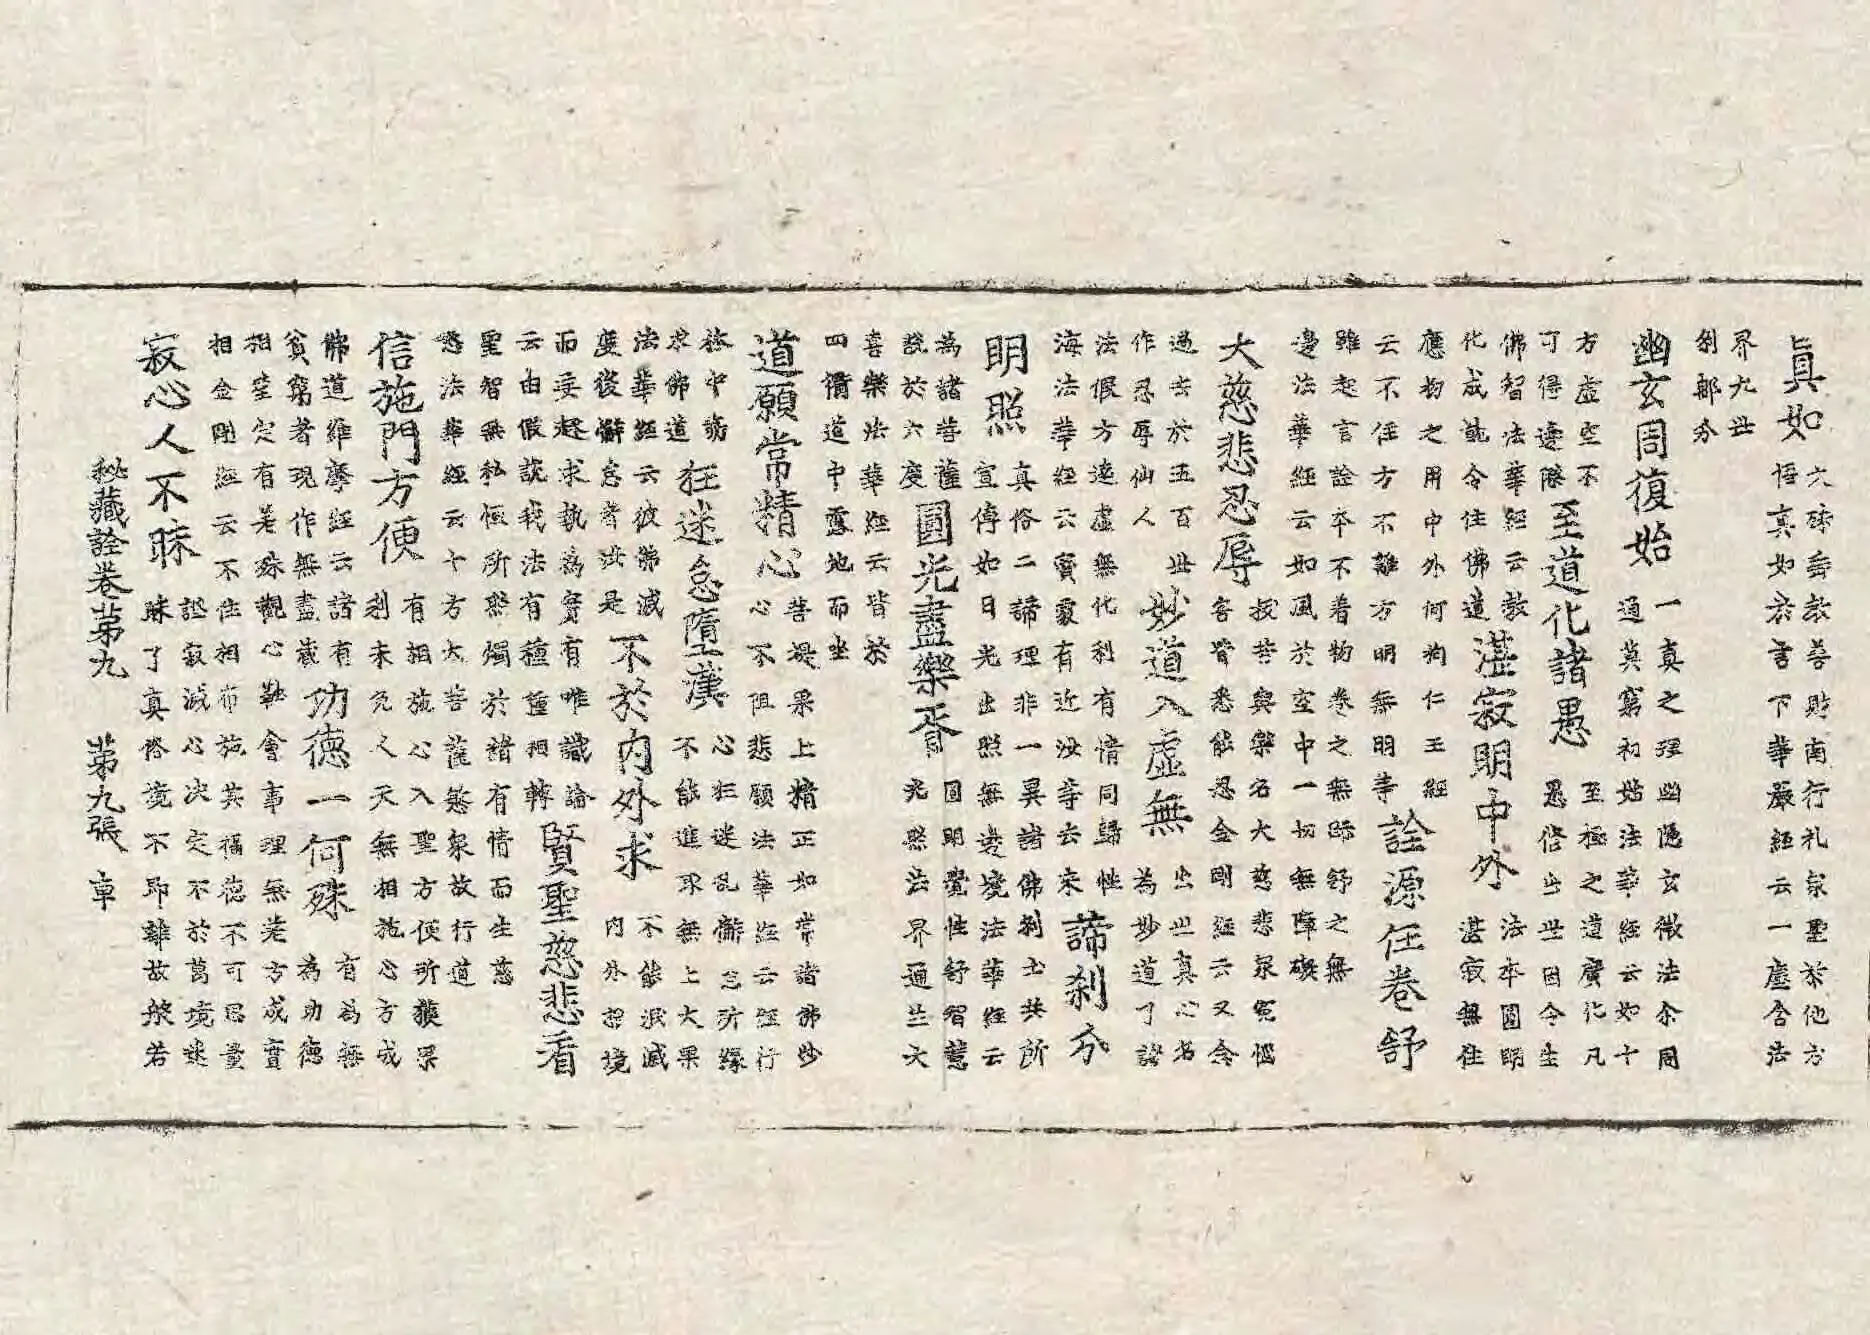 真如
六硋無敎善財南行礼衆聖於他方
悟真如於言下華嚴經云一塵含法
界九世
刹郍分
幽玄周復始
一真之理幽隱玄微法尒周
通莫窮初始法華經云如十
方虛空不
可得邊際
至道化諸愚
至極之道廣化凡
愚修出世因令生
佛智法華經云敎
化成就令住佛道
湛寂明中外
法本圓明
湛寂無住
應物之用中外何拘仁王經
云不住方不離方明無明等
詮源任卷舒
雖起言詮本不着物卷之無眹舒之無
邊法華經云如風於空中一切無障礙
大慈悲忍辱
拔苦與樂名大慈悲衆寃惱
害皆悉能忍金剛經云又念
過去於五百世
作忍辱仙人
妙道入虛無
出世真心名
為妙道了諸
法假方達虛無化利有情同歸性
海法華經云寶處有近汝等去来
諦刹分
明照
真俗二諦理非一異諸佛刹土共所
宣傳如日光出照無邊境法華經云
為諸菩薩
說於六度
圓光盡樂胥
圓明覺性舒智慧
光照法界通大
喜樂法華經云皆於
四衢道中露地而坐
道願常精心
菩提果上精正如常諸佛妙
心不阻悲願法華經云經行
林中勤
求佛道
狂迷怠墮漢
心狂迷乱懈怠所緣
不能進取無上大果
法華經云彼佛滅
度後懈怠者汝是
不於內外求
不能泯滅
內外諸境
而妄趍求執為實有唯識論
云由假說我法有種種相轉
賢聖慈悲看
聖智無私恒所照燭於諸有情而生慈
愍法華經云十方大菩薩愍衆故行道
信施門方便
有相施心入聖方便所獲果
利未免人天無相施心方成
佛道維摩經云諸有
貧窮者現作無盡藏
功德一何殊
有為無
為功德
相望定有差殊觀心融會事理無差方成實
相金剛經云不住相布施其福德不可思量
寂心人不昧
證寂滅心决定不於萬境迷
昧了真俗境不即離故般若
秘藏詮卷第九　第九張　卓